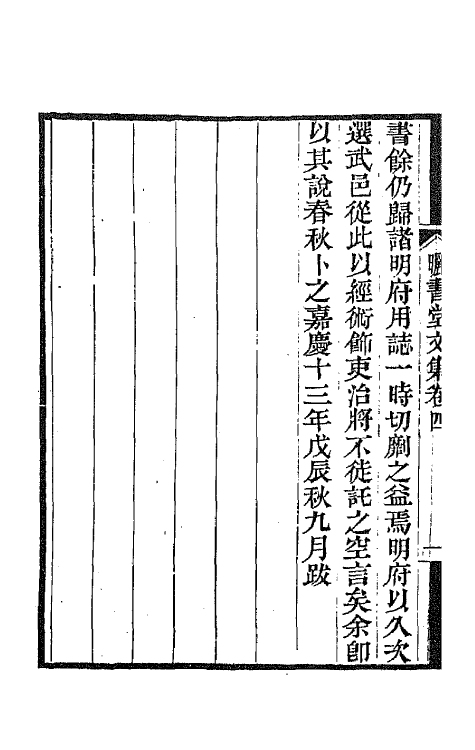 曬書堂文集卷四
一
書餘仍歸諸明府用誌一時切劘之益焉明府以久次
選武邑從此以經術飾吏治將不徒託之空言矣余卽
以其說春秋卜之嘉慶十三年戊辰秋九月跋